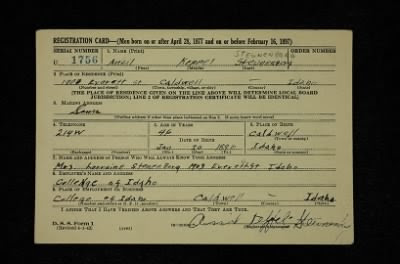 REGISTRATION CARD—(Men born on or after April 28, 1877 and on or before February 16, 1897)
SERIAL NUMBER
1. NAME (Print)
STEUNENBERG
U 1756
Kappel Steunenberg
(First) (Middle) (Last)
2. PLACE OF RESIDENCE (Print)
1903 Everett St Caldwell — Idaho
(Number and street) (Town, township, village, or city) (County) (State)
[THE PLACE OF RESIDENCE GIVEN ON THE LINE ABOVE WILL DETERMINE LOCAL BOARD
JURISDICTION; LINE 2 OF REGISTRATION CERTIFICATE WILL BE IDENTICAL]
3. MAILING ADDRESS
Same
[Mailing address if other than place indicated on line 2. If same insert word same]
4. TELEPHONE
5. AGE IN YEARS
6. PLACE OF BIRTH
214W
46
Caldwell
DATE OF BIRTH
(Town or county)
Jan
Idaho
(Mo.) (Day) (Yr.)
(State or country)
7. NAME AND ADDRESS OF PERSON WHO WILL ALWAYS KNOW YOUR ADDRESS
Mrs Lorraine Steunenberg 1903 Everett St Idaho
8. EMPLOYER'S NAME AND ADDRESS
College of Idaho
9. PLACE OF EMPLOYMENT OR BUSINESS
College of Idaho Caldwell — Idaho
(Number and street or R. F. D. number) (Town) (County) (State)
I AFFIRM THAT I HAVE VERIFIED ABOVE ANSWERS AND THAT THEY ARE TRUE.
D. S. S. Form 1
(Revised 4-1-42) (over)